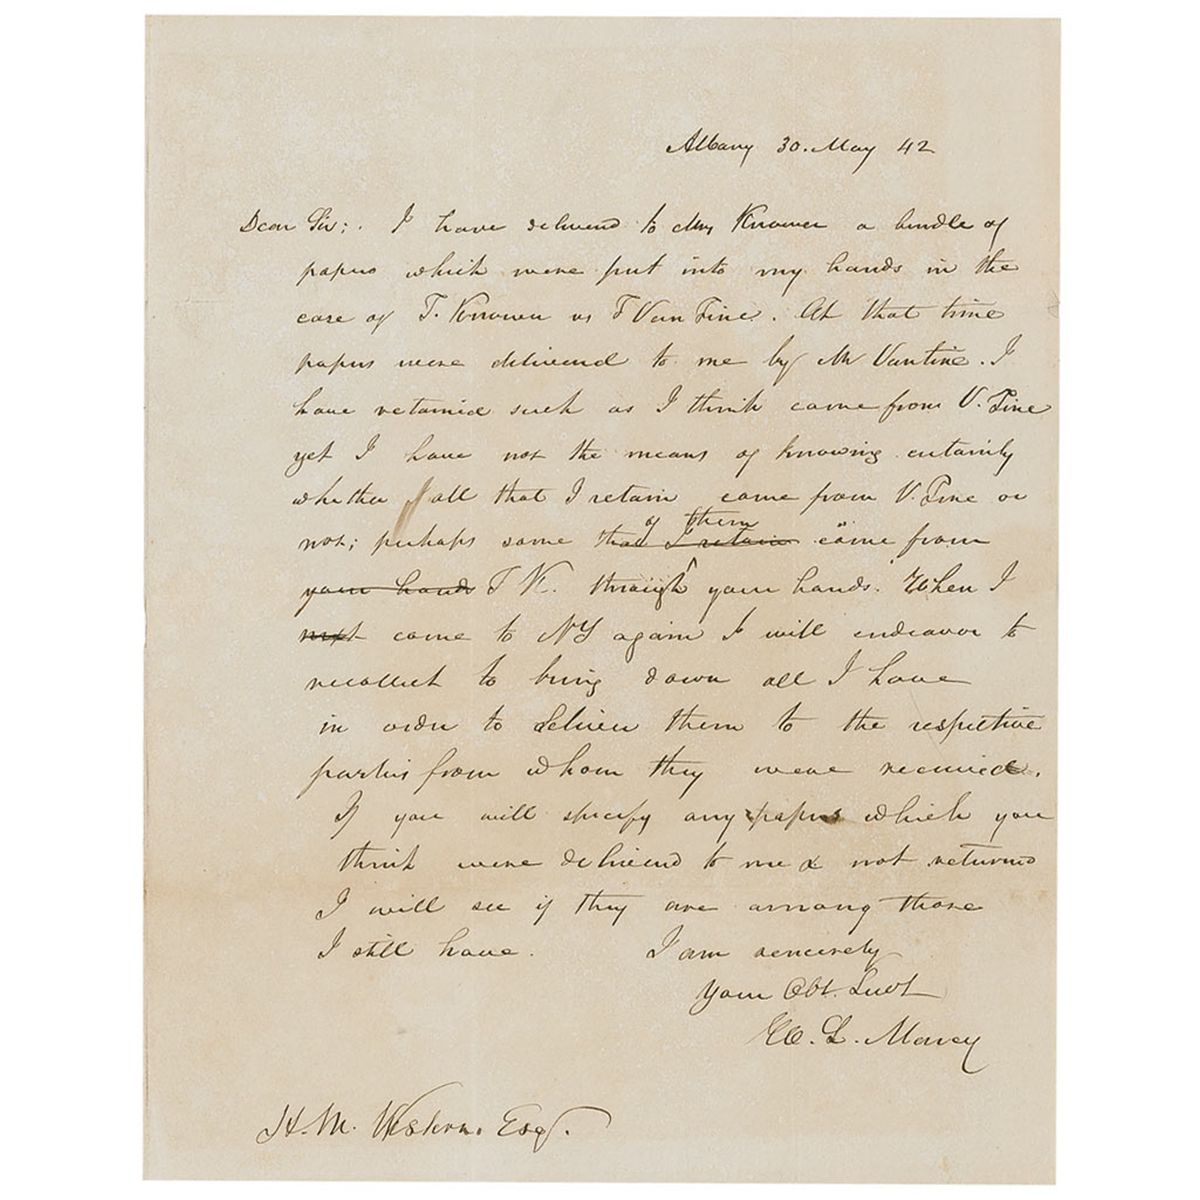 Albany 30. May 42
Dear Sir; . I have delivered to Mr Knower a bundle of
papers which were put into my hands in the
case of T. Knower vs T Van Tine. At that time
papers were delivered to me by Mr Vantine. I
have retained such as I think came from V. Tine
yet I have not the means of knowing certainly
whether all that I retain came from V. Tine or
of them
not; perhaps some that I retain came from
your hands T K. through your hands. When I
next come to NY again I will endeavor to
recollect to bring down all I have
in order to deliver them to the respective
parties from whom they were received.
If you will specify any papers which you
think were delivered to me & not returned
I will see if they are among those
I still have. I am sincerely
Your Obt. Servt
W. L. Marcy
H. M. Western. Esq.